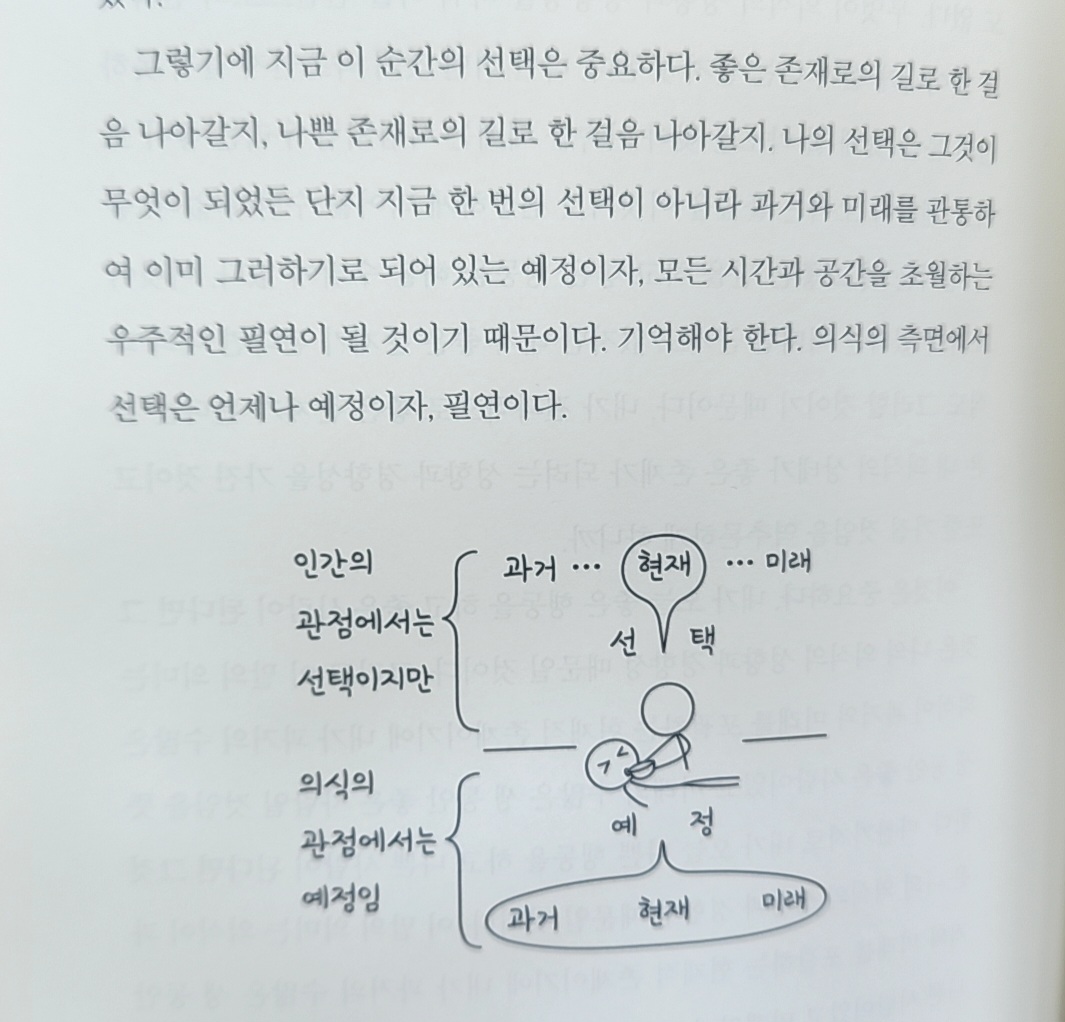 그렇기에 지금 이 순간의 선택은 중요하다. 좋은 존재로의 길로 한 걸
음 나아갈지, 나쁜 존재로의 길로 한 걸음 나아갈지. 나의 선택은 그것이
무엇이 되었든 단지 지금 한 번의 선택이 아니라 과거와 미래를 관통하
여 이미 그러하기로 되어 있는 예정이자, 모든 시간과 공간을 초월하는
우주적인 필연이 될 것이기 때문이다. 기억해야 한다. 의식의 측면에서
선택은 언제나 예정이자, 필연이다.
인간의
관점에서는
선택이지만
과거 ··· 현재 ··· 미래
선 택
의식의
관점에서는
예정임
예 정
과거 현재 미래